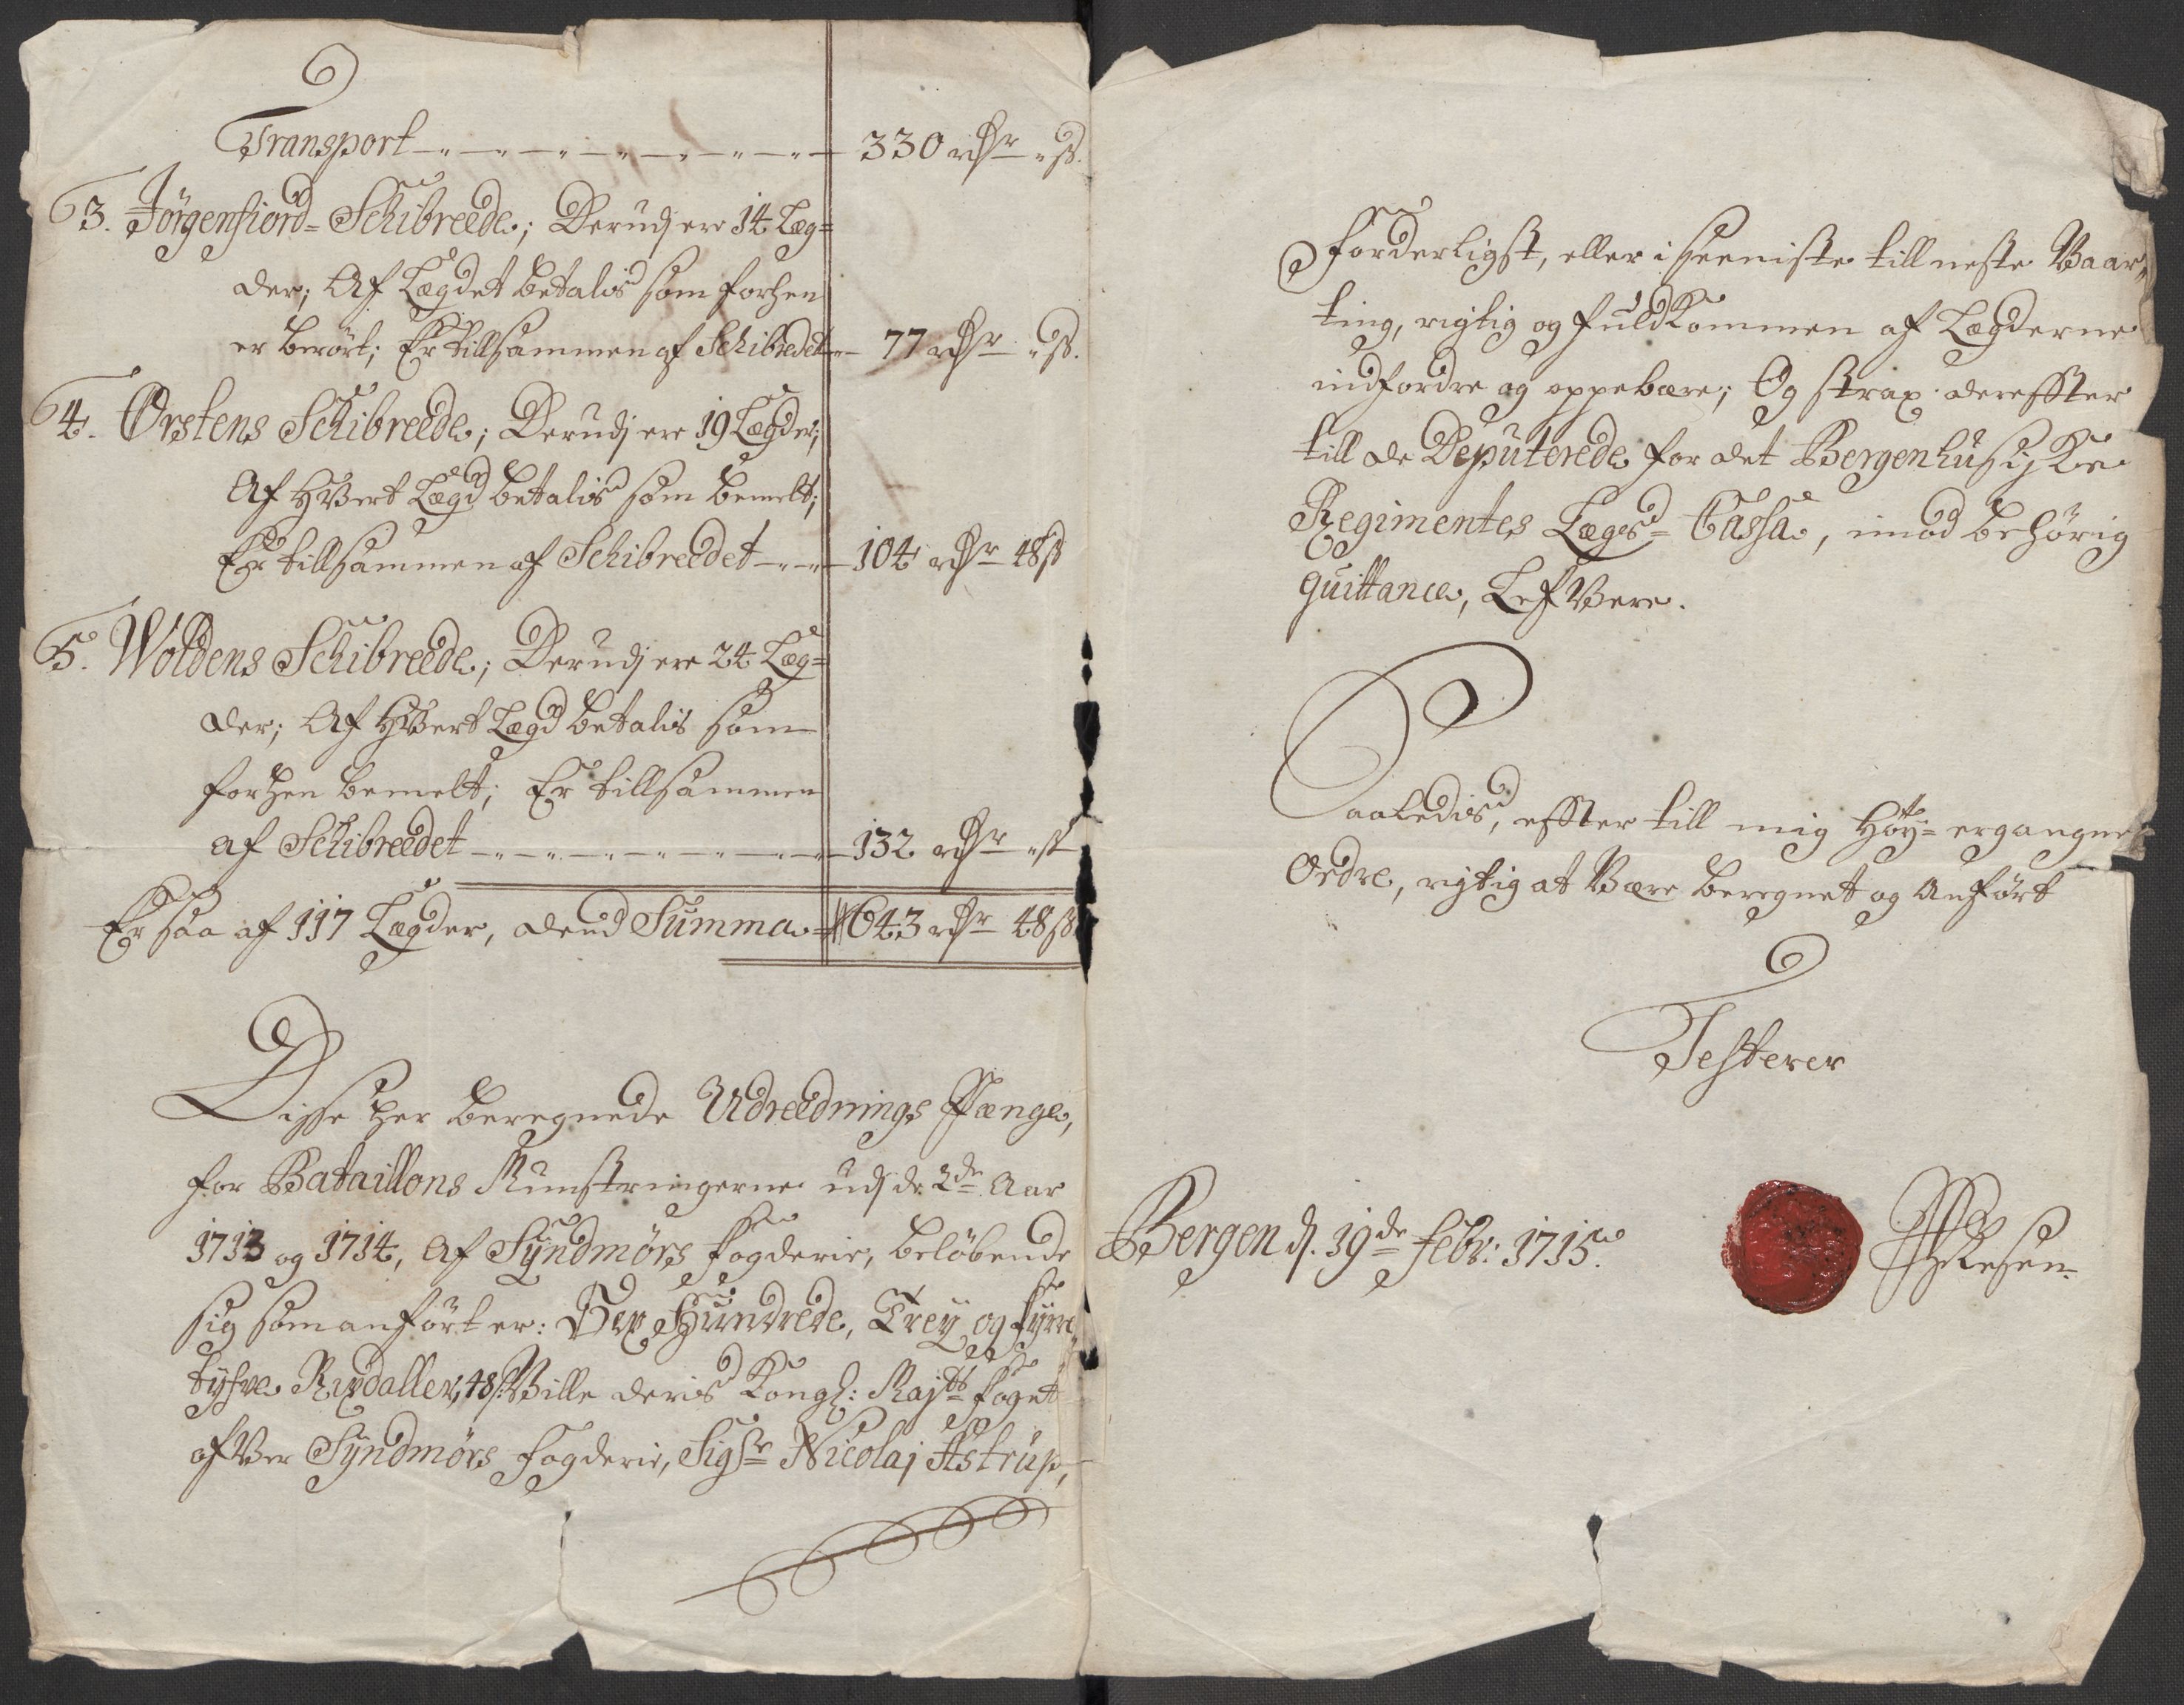 Transport 330 rdr - " ß.
3. Jörgenfiord-Schibreede; Derudj ere 14 Læg=
der; Af Lægdet betalis som forhen
er berört; Er tillsammen af Schibredet 77 rdr " ß.
4. Ørstens Schibreede; Derudj ere 19 Lægder;
Af hVert Lægd betalis som bemelt;
Er tillsammen af Schibreedet 104 rdr 48 ß
5. Woldens Schibreede; Derudj ere 24 Læg=
der; Af hVert Lægd betalis som
forhen bemelt; Er tillsammen
af Schibreedet 132 rdr " ß
Er saa af 117 Lægder, dend Summa 643 rdr 48 ß
Disse her beregnede Udreednings Penge,
for Bataillons Munstringerne udj de 2de Aar
1713 og 1714, Af Syndmørs fogderie, beløbende
sig som anfört er: Sex Hundrede, Trey og fyrre
tyfve Rixdaller, 48 ß: Ville deris Kongl: Majts foget
ofVer Syndmørs fogderie, Sigr Nicolaj Astrup,
forderligst, eller i seeniste till neste Vaar=
ting, rigtig og fuldkommen af Lægderne
indfordre og oppebære; Og strax derefter
till de Deputerede for det Bergenhusiske
Regimentes Lægds-Cassa, imod behörig
quittance, LefVere.
Saaledis, effter till mig höy-ergangne
Ordre, rigtig at Være beregnet og Anfört
Testerer
Bergen d. 19de febr: 1715.